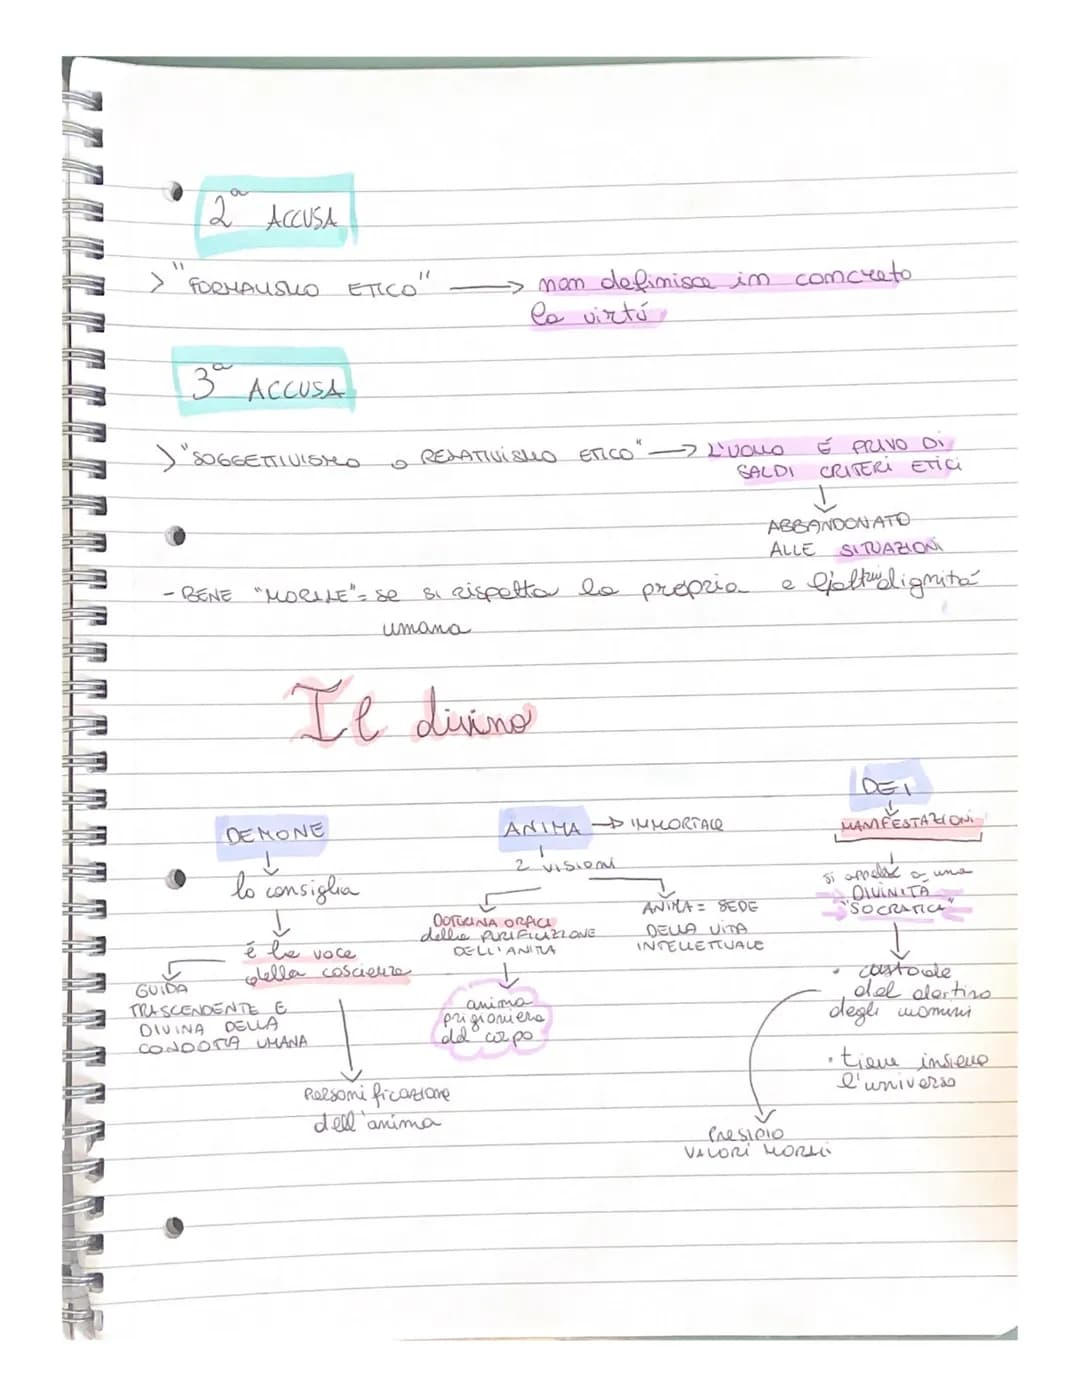 2ª ACCUSA
> "FORMALISMO ETICO" → non definisce in concreto
la virtú
3ª ACCUSA
> "SOGGETTIVISMO o RELATIVISMO ETICO" → L'UOMO É PRIVO DI
SALDI CRITERI ETICI
↓
ABBANDONATO
ALLE SITUAZIONI
- BENE "MORALE" = se si rispetta la propria e l'altrui dignitá
umana
Il divino
DEMONE
↓
lo consiglia
↓
é la voce
della coscienza
GUIDA
TRASCENDENTE E
DIVINA DELLA
CONDOTTA UMANA
Personificazione
dell'anima
ANIMA → IMMORTALE
2 visioni
DOTTRINA ORFICA
della PURIFICAZIONE
DELL'ANIMA
↓
anima
prigioniera
del corpo
ANIMA = SEDE
DELLA VITA
INTELLETTUALE
DEI
↓
MANIFESTAZIONI
si appella a una
DIVINITÀ
"SOCRATICA"
↓
• custode
del destino
degli uomini
• tiene insieme
l'universo
PRESIDIO
VALORI MORALI